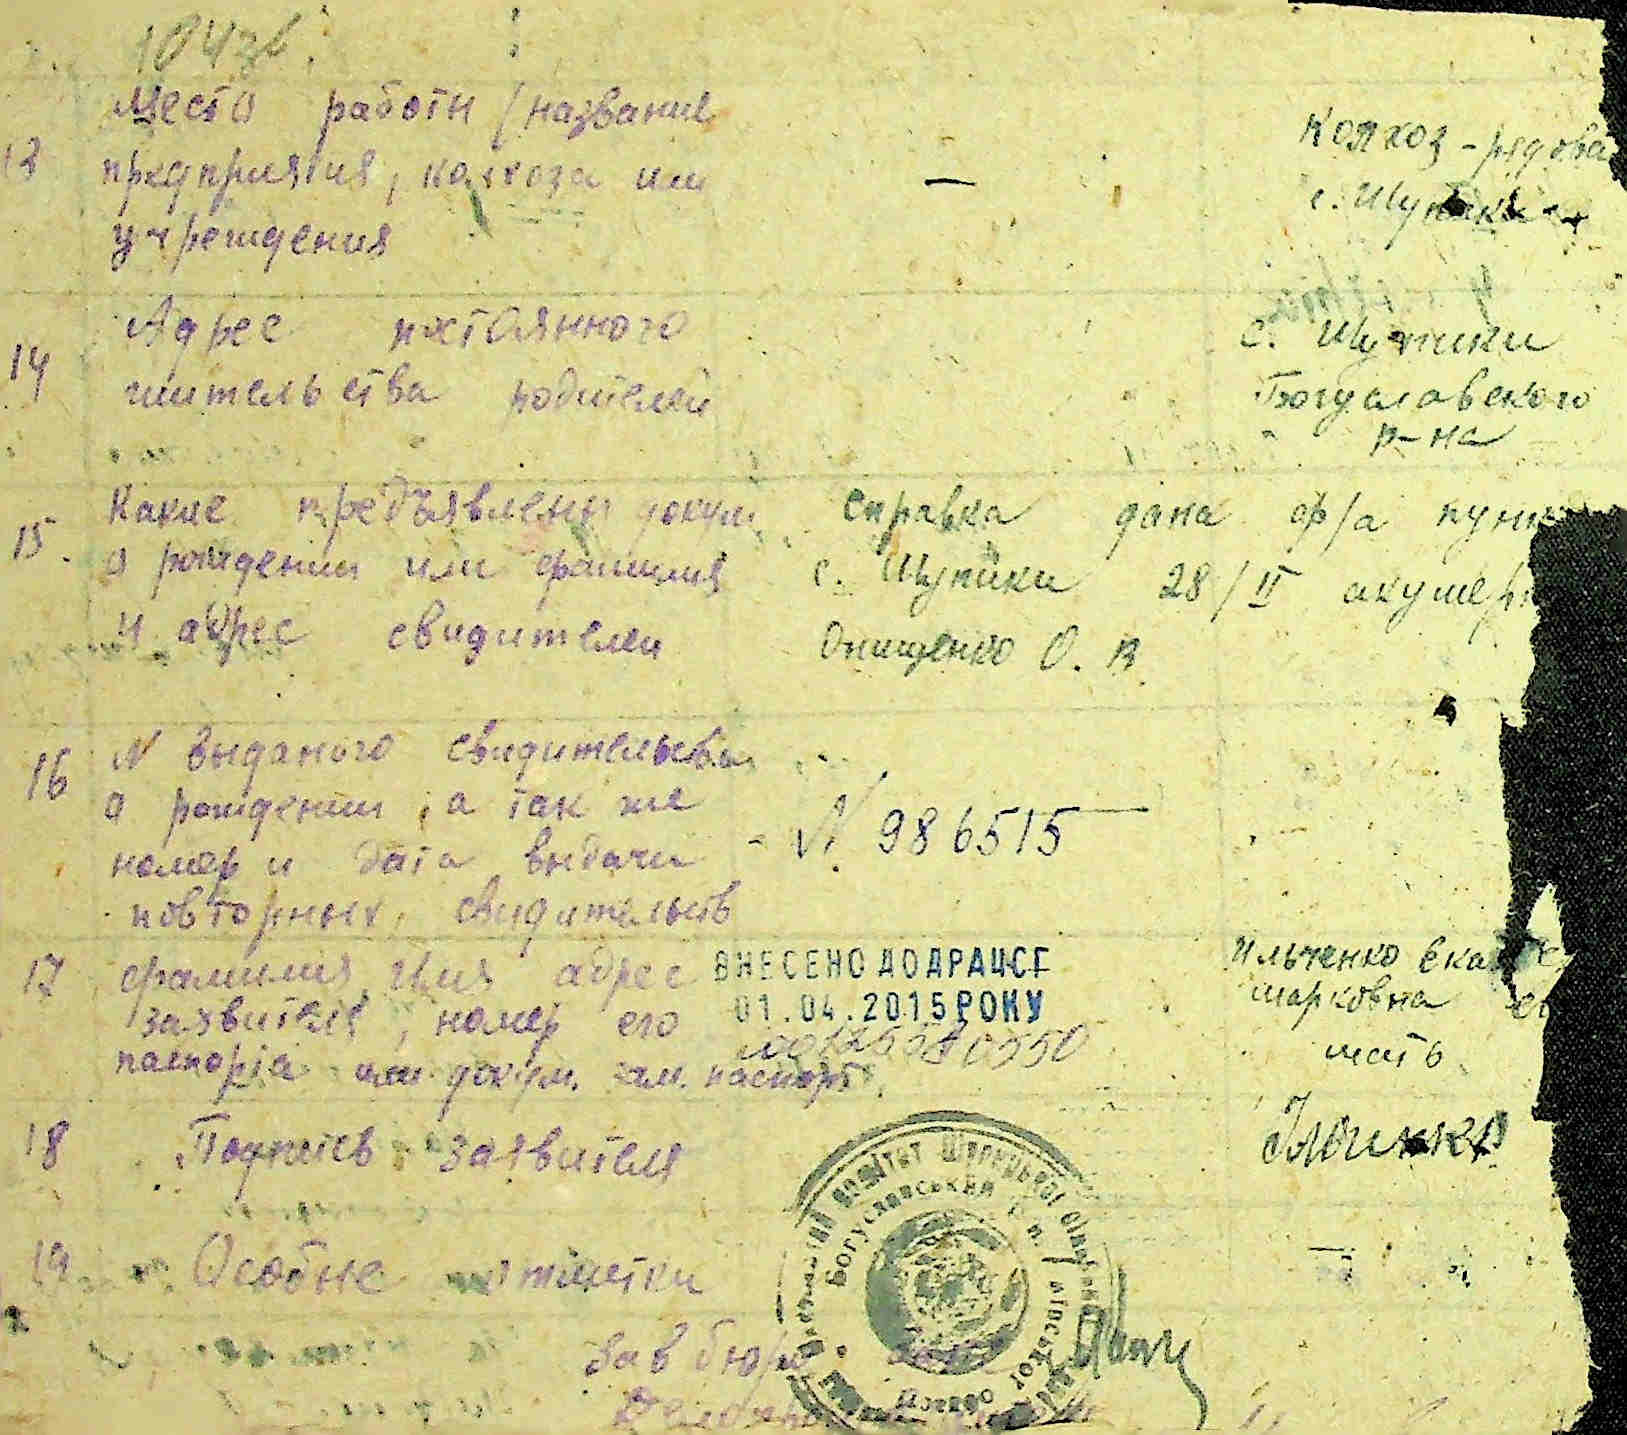 104зв.
Место работи (название
13 предприятия, колхоза или — Колхоз - рядова
учреждения с. Шупики
Адрес постоянного с. Шупики
14 жительства родителей Богуславского
р-на
15. Какие предъявлени докум. справка дана ф/а пунк
о рождении или фамилия с. Шупики 28/II акушер
и адрес свидителей Онищенко О. В
16 N выданого свидительства
о рождении, а так же - N 986515
номер и дата выдачи
повторных свидительств
17 фамилия, имя адрес ВНЕСЕНО ДО ДРАЦСГ Ильченко Ека
заявителя, номер его 01.04.2015 РОКУ марковна
паспорта или докум. зам. паспорт мать
18 Подпись заявителя
19 Особые отметки —
Зав бюро
Богуславський